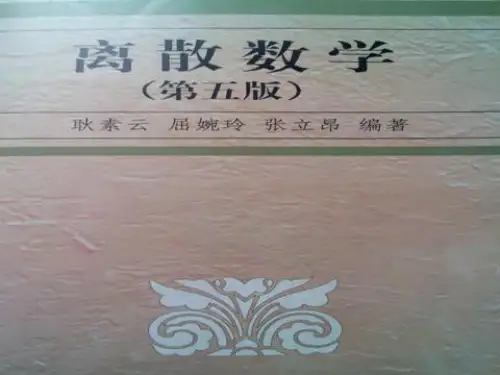 离散数学
（第五版）
耿素云 屈婉玲 张立昂 编著